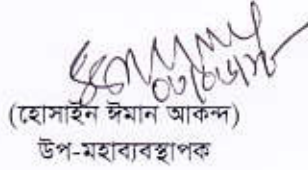 (হোসাইন ঈমান আকন্দ)
উপ-মহাব্যবস্থাপক